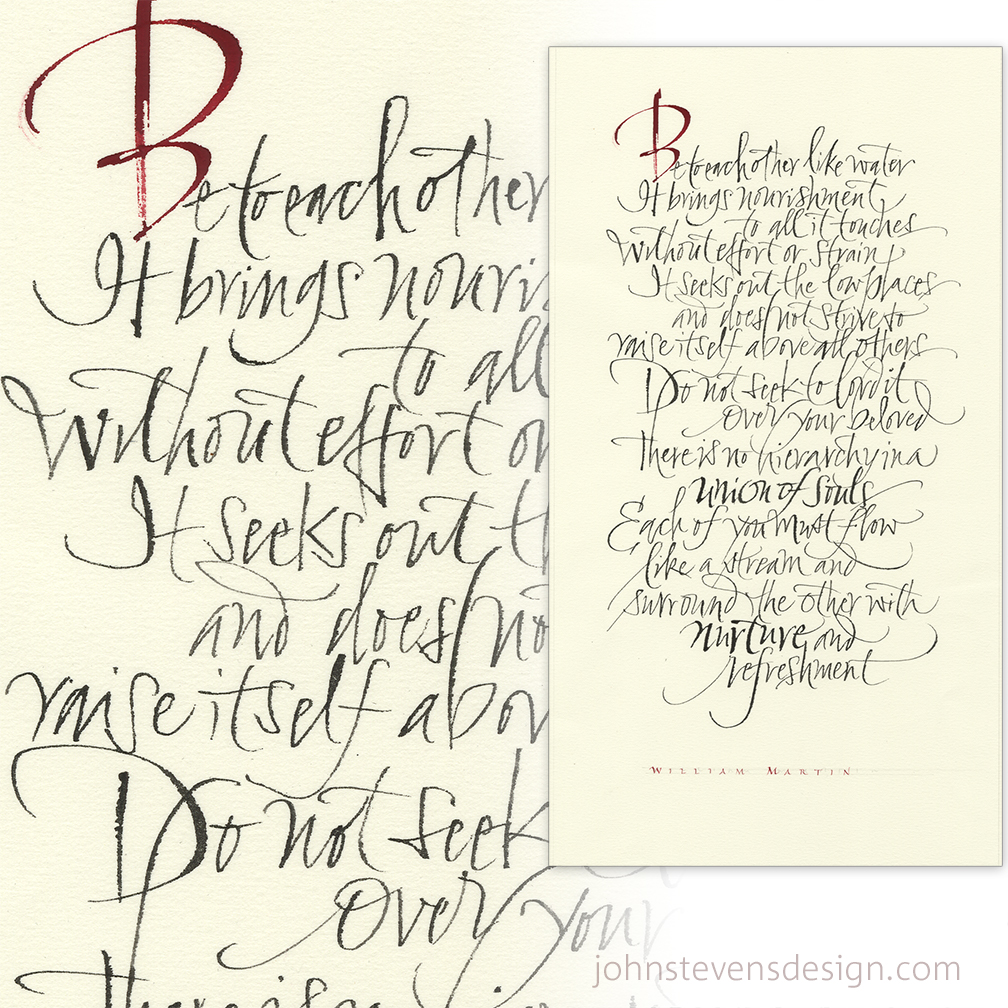 Be to each other
It brings nouri
to all
Without effort or
It seeks out th
and does no
raise itself abov
Do not seek
over your
There is no
Be to each other like water
It brings nourishment
to all it touches
Without effort or strain
It seeks out the low places
and does not strive to
raise itself above all others
Do not seek to lord it
over your beloved
There is no hierarchy in a
union of souls
Each of you must flow
like a stream and
surround the other with
nurture and
refreshment
WILLIAM MARTIN
johnstevensdesign.com